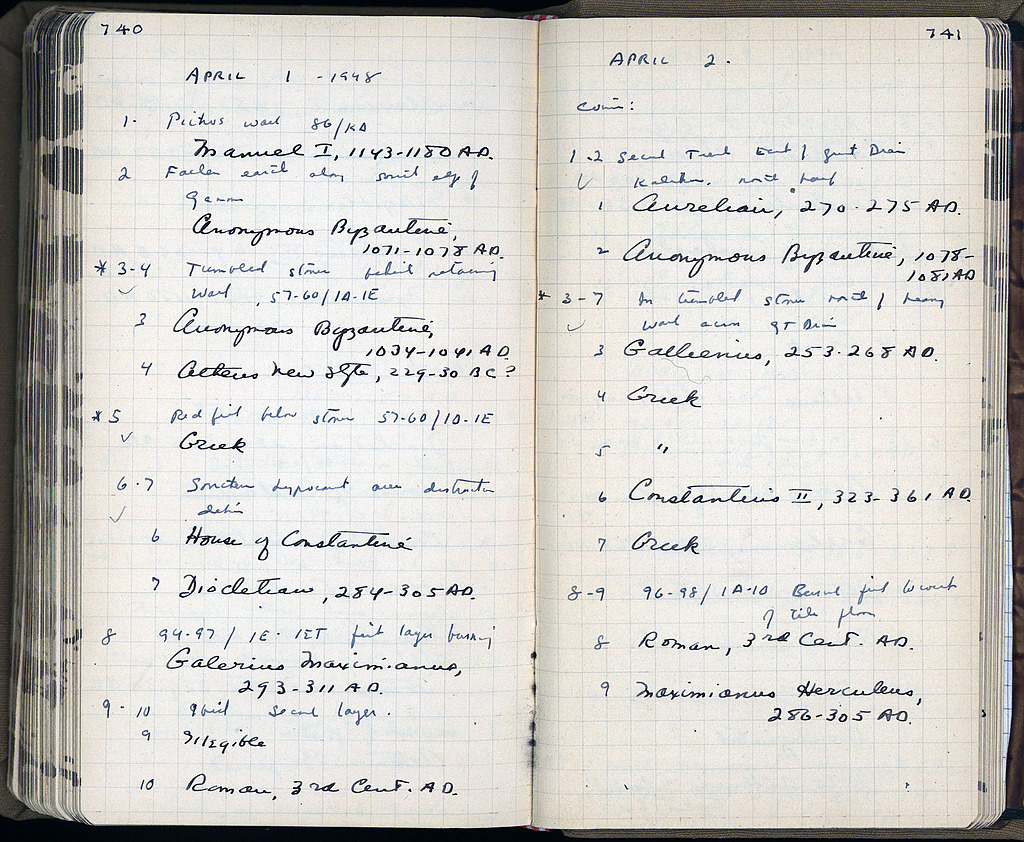 740
APRIL 1 - 1948
1. Pithos wall 86/KA
Manuel I, 1143-1180 AD.
2 Fallen earth along south edge of
Anonymous Byzantine,
1071-1078 AD.
* 3-4 Tumbled stones behind retaining
✓ wall, 57-60/IA-IE
3 Anonymous Byzantine,
1034-1041 AD.
4 Athens New Style, 229-30 BC?
* 5 Red fill below stones 57-60/IA-IE
✓ Greek
6-7 hypocaust area destruction
✓ debris
6 House of Constantine
7 Diocletian, 284-305 AD.
8 94-97/IE-IET first layer
Galerius Maximianus,
293-311 AD.
9-10 Second layer.
9 Illegible
10 Roman, 3rd Cent. AD.
741
APRIL 2.
Coins:
1-2 Second Trench East of great Drain
✓ north half
1 Aurelian, 270-275 AD.
2 Anonymous Byzantine, 1078-
1081 AD
* 3-7 In tumbled stones north of heavy
✓ wall across GT Drain
3 Gallienus, 253-268 AD.
4 Greek
5 "
6 Constantius II, 323-361 AD.
7 Greek
8-9 96-98/IA-ID
of tile floor
8 Roman, 3rd Cent. AD.
9 Maximianus Herculeus,
286-305 AD.